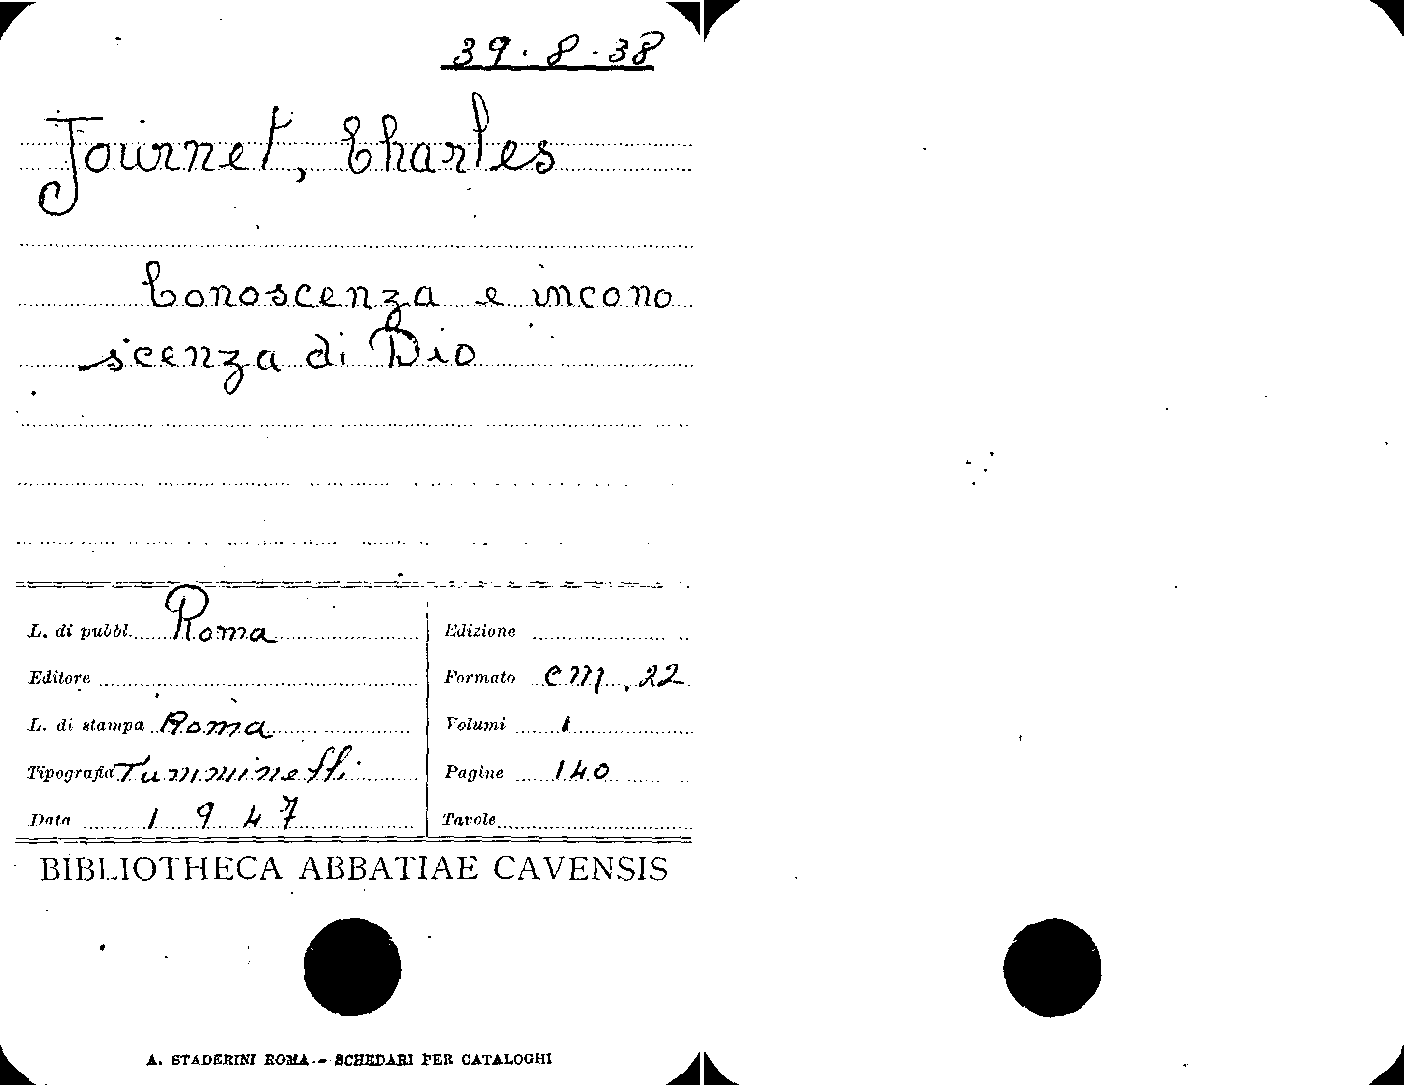 39.8.38
Journet, Charles
Conoscenza e incono
scenza di Dio
L. di pubbl. Roma
Edizione
Editore
Formato cm. 22
L. di stampa Roma
Volumi 1
Tipografia Tumminelli
Pagine 140
Data 1947
Tavole
BIBLIOTHECA ABBATIAE CAVENSIS
A. STADERINI ROMA - SCHEDARI PER CATALOGHI